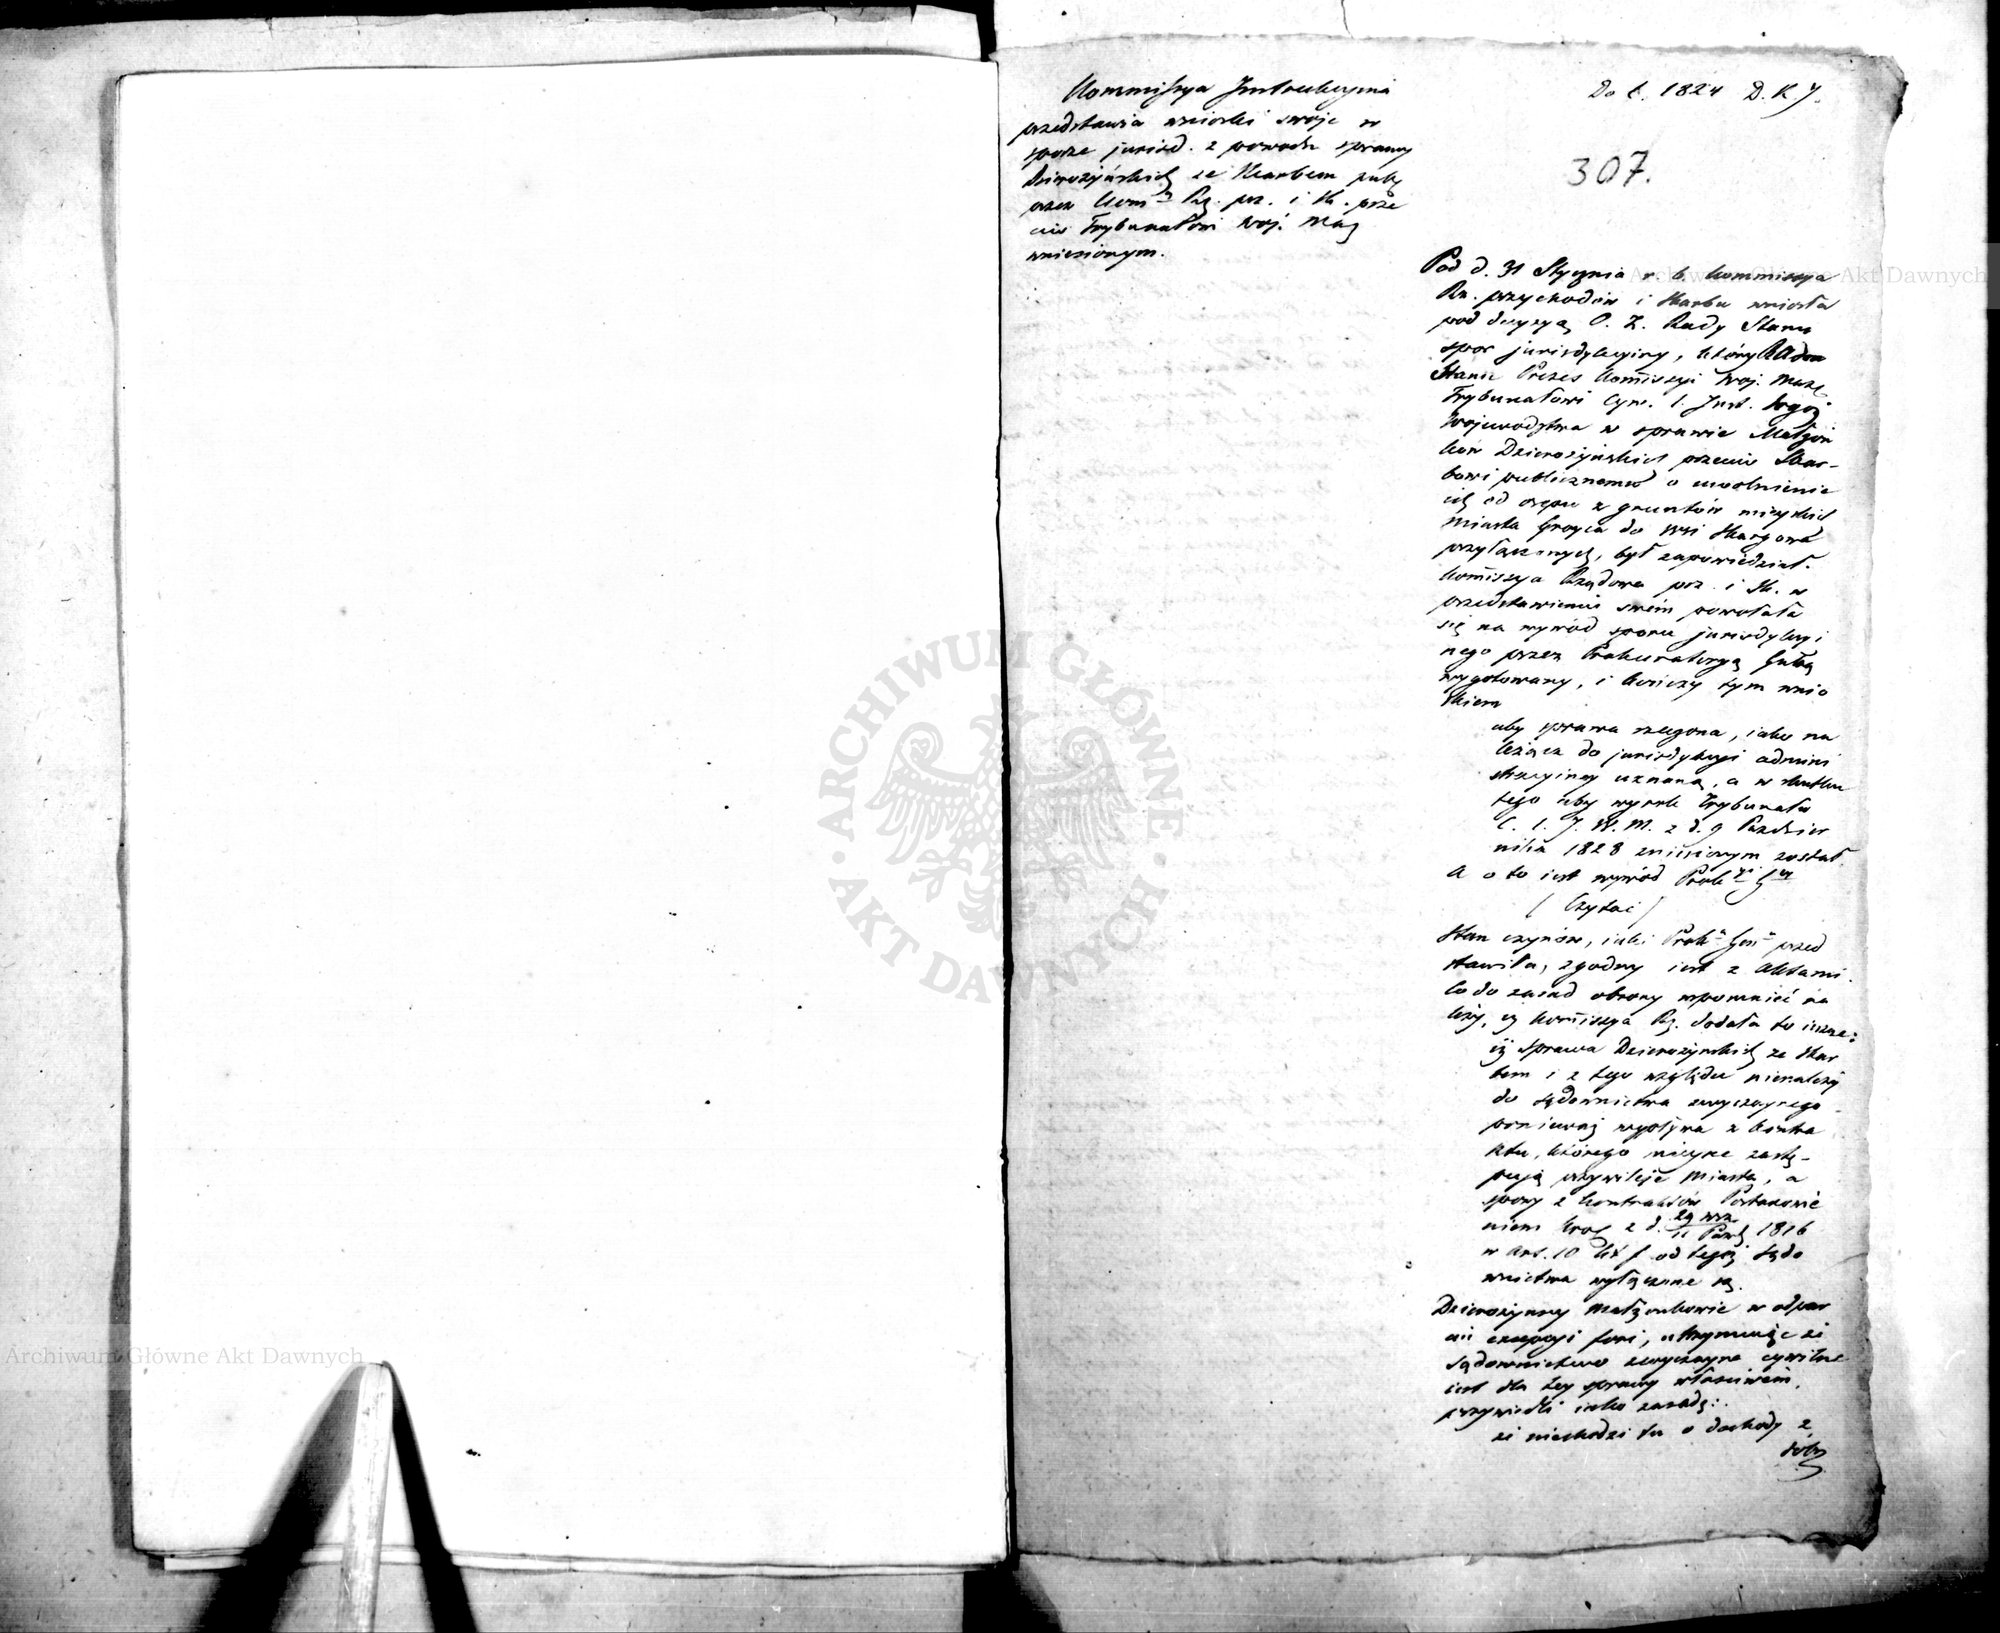 Kommissya Instrukcyina
przedstawia wnioski swoje w
sporze jurisd. z powodu sprawy
Dzierożyńskich ze Skarbem pub.
przez Kom. Rz. prz. i Sk. prze
ciw Trybunałowi Woj. Maz
wniesionym.
Do L. 1824 D. K. J.
307.
Pod d. 31 Stycznia r. b. Kommissya
Rz. przychodów i Skarbu wniosła
pod decyzyą O. Z. Rady Stanu
spor jurisdykcyiny, który Radca
Stanu Prezes Komissyi Woj. Maz.
Trybunałowi Cyw. I. Inst. tegoż
Województwa w sprawie Małżon
ków Dzierożyńskich przeciw Skar-
bowi publicznemu o uwolnienie
ich od osepu z gruntów mieyskich
miasta Groyca do Wsi
przyłączonych, był zapowiedział.
Komissya Rządowa prz. i Sk. w
przedstawieniu swém powołała
się na wywód sporu jurisdykcyi
nego przez Prokuratoryą Gułą
wygotowany, i kończy tym wnio
skiem
aby sprawa rzeczona, iako na
leżąca do jurisdykcyi admini
stracyiney uznaną, a w skutku
tego aby wyrok Trybunału
C. I. J. W. M. z d. 9 Paździer
nika 1828 zniesionym został.
A oto iest wywód Prok
(Czytać)
Stan czynów, iaki Prok. Gen. przed
stawiła, zgodny iest z Aktami.
Co do zasad obrony wspomnieć na
leży, iż Komissya Rz. dodała tu ieszcze:
iż sprawa Dzierożyńskich ze Skar
bem i z tego względu nienależy
do sądownictwa zwyczaynego
ponieważ wypływa z kontra
ktu, którego mieysce zastę-
pują przywileje Miasta, a
spory z kontraktów Postanowie
niem Król z d. 29 wrz. / 11 Paźdź 1816
w Art. 10 lit f od tegoż sądo
wnictwa wyłączone są.
Dzierożyńscy małżonkowie w odpar
ciu excepcyi fori, utrzymuiąc że
sądownictwo zwyczayne cywilne
iest dla tey sprawy właściwém,
przywiedli iako zasadę:
że niechodzi tu o dochody z
dóbr